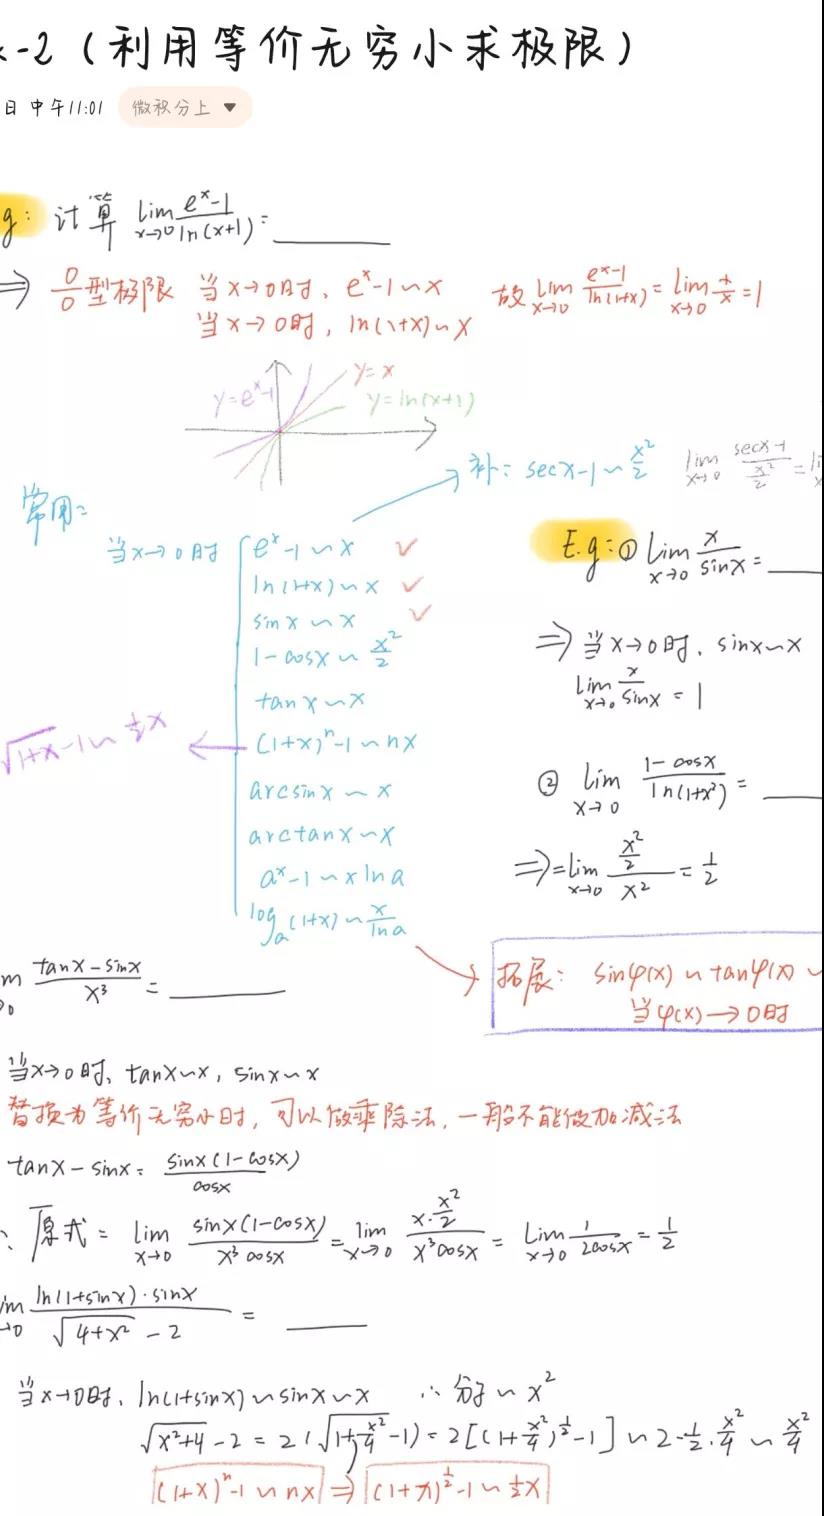 -2（利用等价无穷小求极限）
日 中午11:01 微积分上 ▼
g: 计算 lim x→0 (e^x-1)/(ln(x+1)) = ____
⇒ 0/0型极限 当x→0时, e^x-1~x 故 lim x→0 (e^x-1)/(ln(1+x)) = lim x→0 x/x = 1
当x→0时, ln(1+x)~x
y=e^x-1 y=x
y=ln(x+1)
补: secx-1~x²/2 lim x→0 (secx-1)/(x²/2) =
常用:
当x→0时 e^x-1~x ✓
ln(1+x)~x ✓
sinx~x ✓
1-cosx~x²/2
tanx~x
√(1+x)-1~½x ← (1+x)^n-1~nx
arcsinx~x
arctanx~x
a^x-1~xlna
log_a(1+x)~x/lna
E.g: ① lim x→0 x/sinx = ____
⇒ 当x→0时, sinx~x
lim x→0 x/sinx = 1
② lim x→0 (1-cosx)/(ln(1+x²)) = ____
⇒ = lim x→0 (x²/2)/x² = 1/2
拓展: sinφ(x)~tanφ(x)~
当φ(x)→0时
(tanx-sinx)/x³ = ____
当x→0时, tanx~x, sinx~x
替换为等价无穷小时, 可以做乘除法, 一般不能做加减法
tanx-sinx= sinx(1-cosx)/cosx
原式 = lim x→0 sinx(1-cosx)/(x³cosx) = lim x→0 (x·x²/2)/(x³cosx) = lim x→0 1/(2cosx) = 1/2
ln(1+sinx)·sinx/(√(4+x²)-2) = ____
当x→0时, ln(1+sinx)~sinx~x ∴分子~x²
√(x²+4)-2 = 2(√(1+x²/4)-1) = 2[(1+x²/4)^½-1] ~ 2·½·x²/4 ~ x²/4
(1+x)^n-1~nx ⇒ (1+x)^½-1~½x